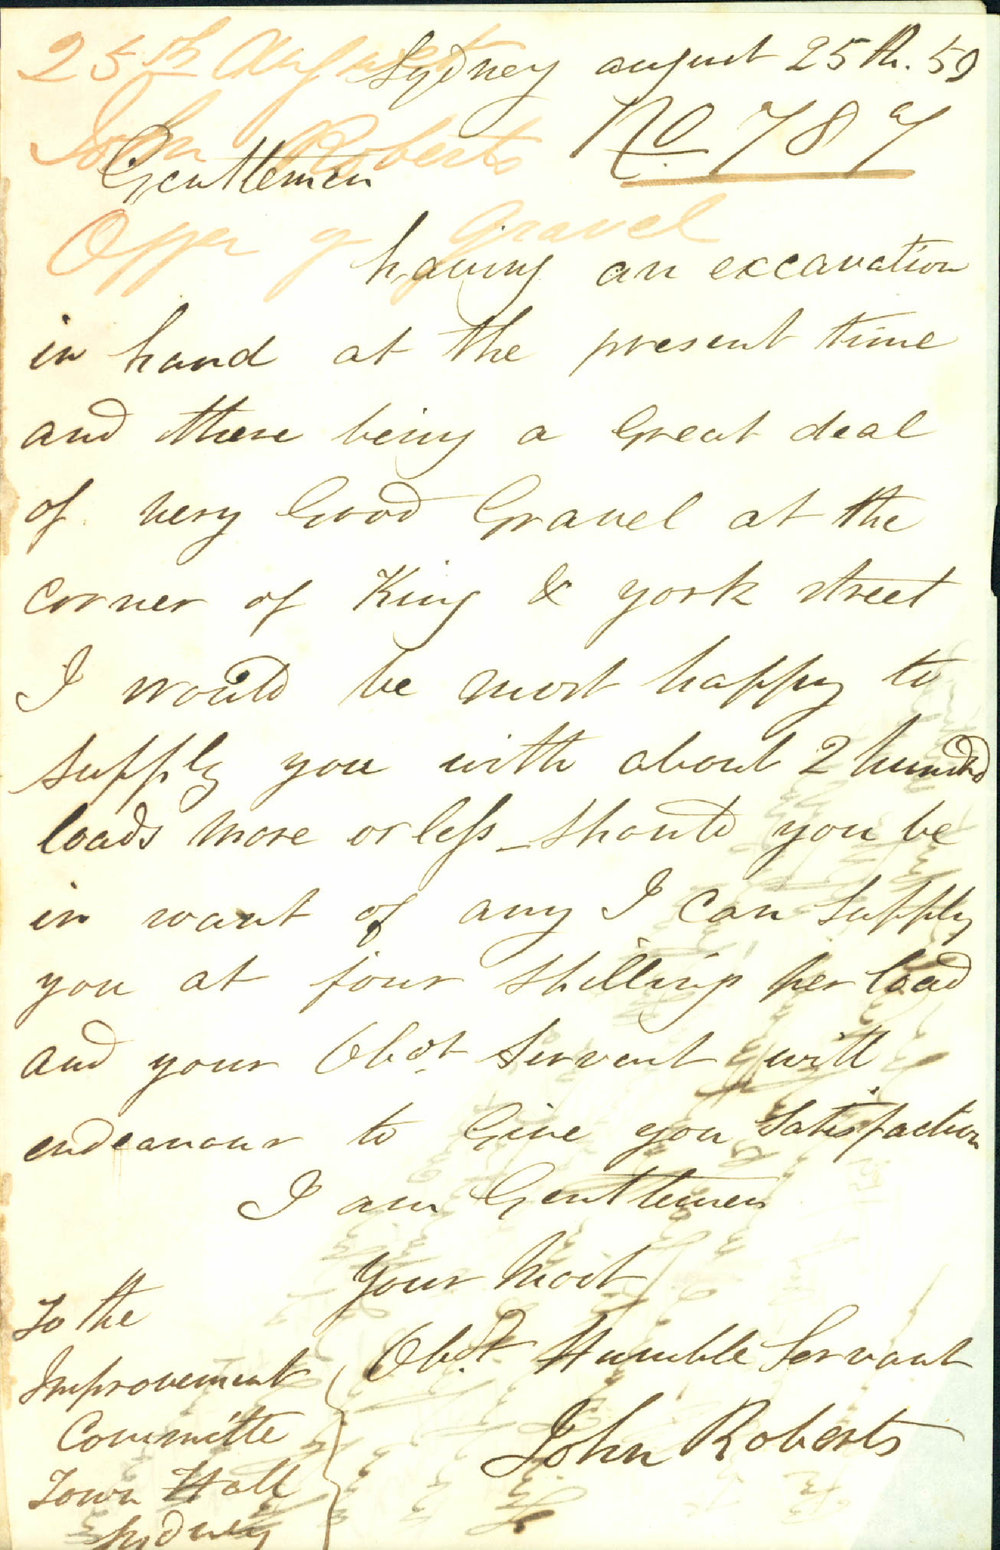 25th August
Sydney august 25th. 59
No 787
John Roberts
Gentlemen
Offer of Gravel
having an excavation
in hand at the present time
and there being a Great deal
of very Good Gravel at the
corner of King & york street
I would be most happy to
supply you with about 2 hundred
loads more or less - should you be
in want of any I can supply
you at four shillings per load
and your Obdt Servant will
endeavour to Give you satisfaction
I am Gentlemen
your Most
Obdt. Humble Servant
John Roberts
To the
Improvement
Committe
Town Hall
Sydney